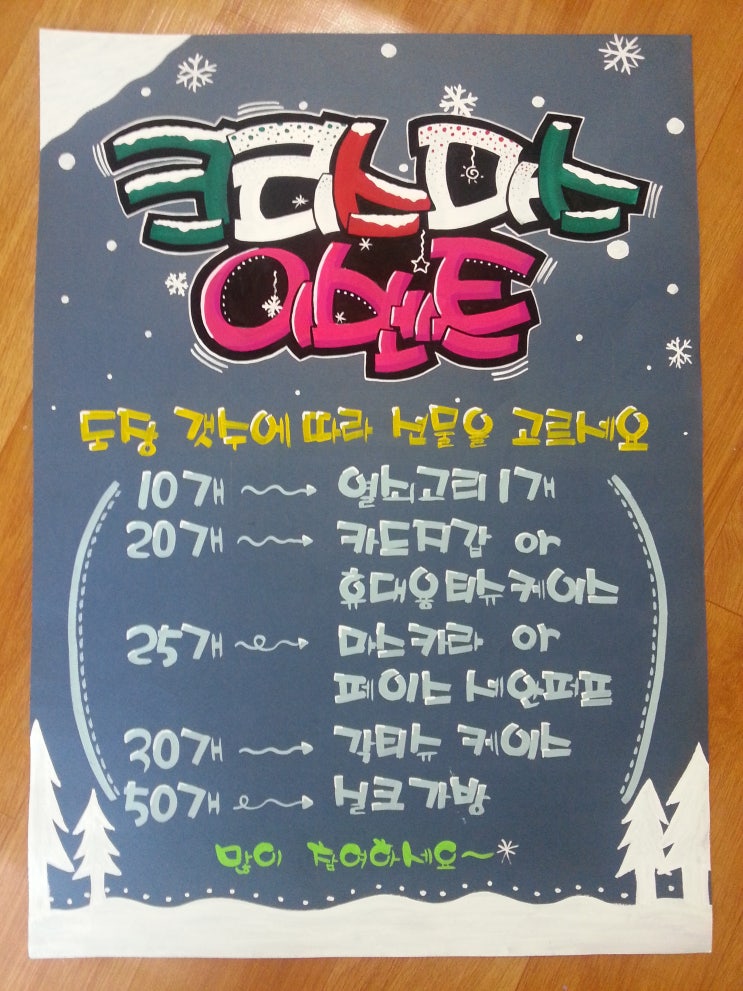 크리스마스
이벤트
도장 갯수에 따라 선물을 고르세요
10개 → 열쇠고리 1개
20개 → 카드지갑 or
휴대용티슈케이스
25개 → 마스카라 or
페이스 세안퍼프
30개 → 각티슈 케이스
50개 → 실크가방
많이 참여하세요~